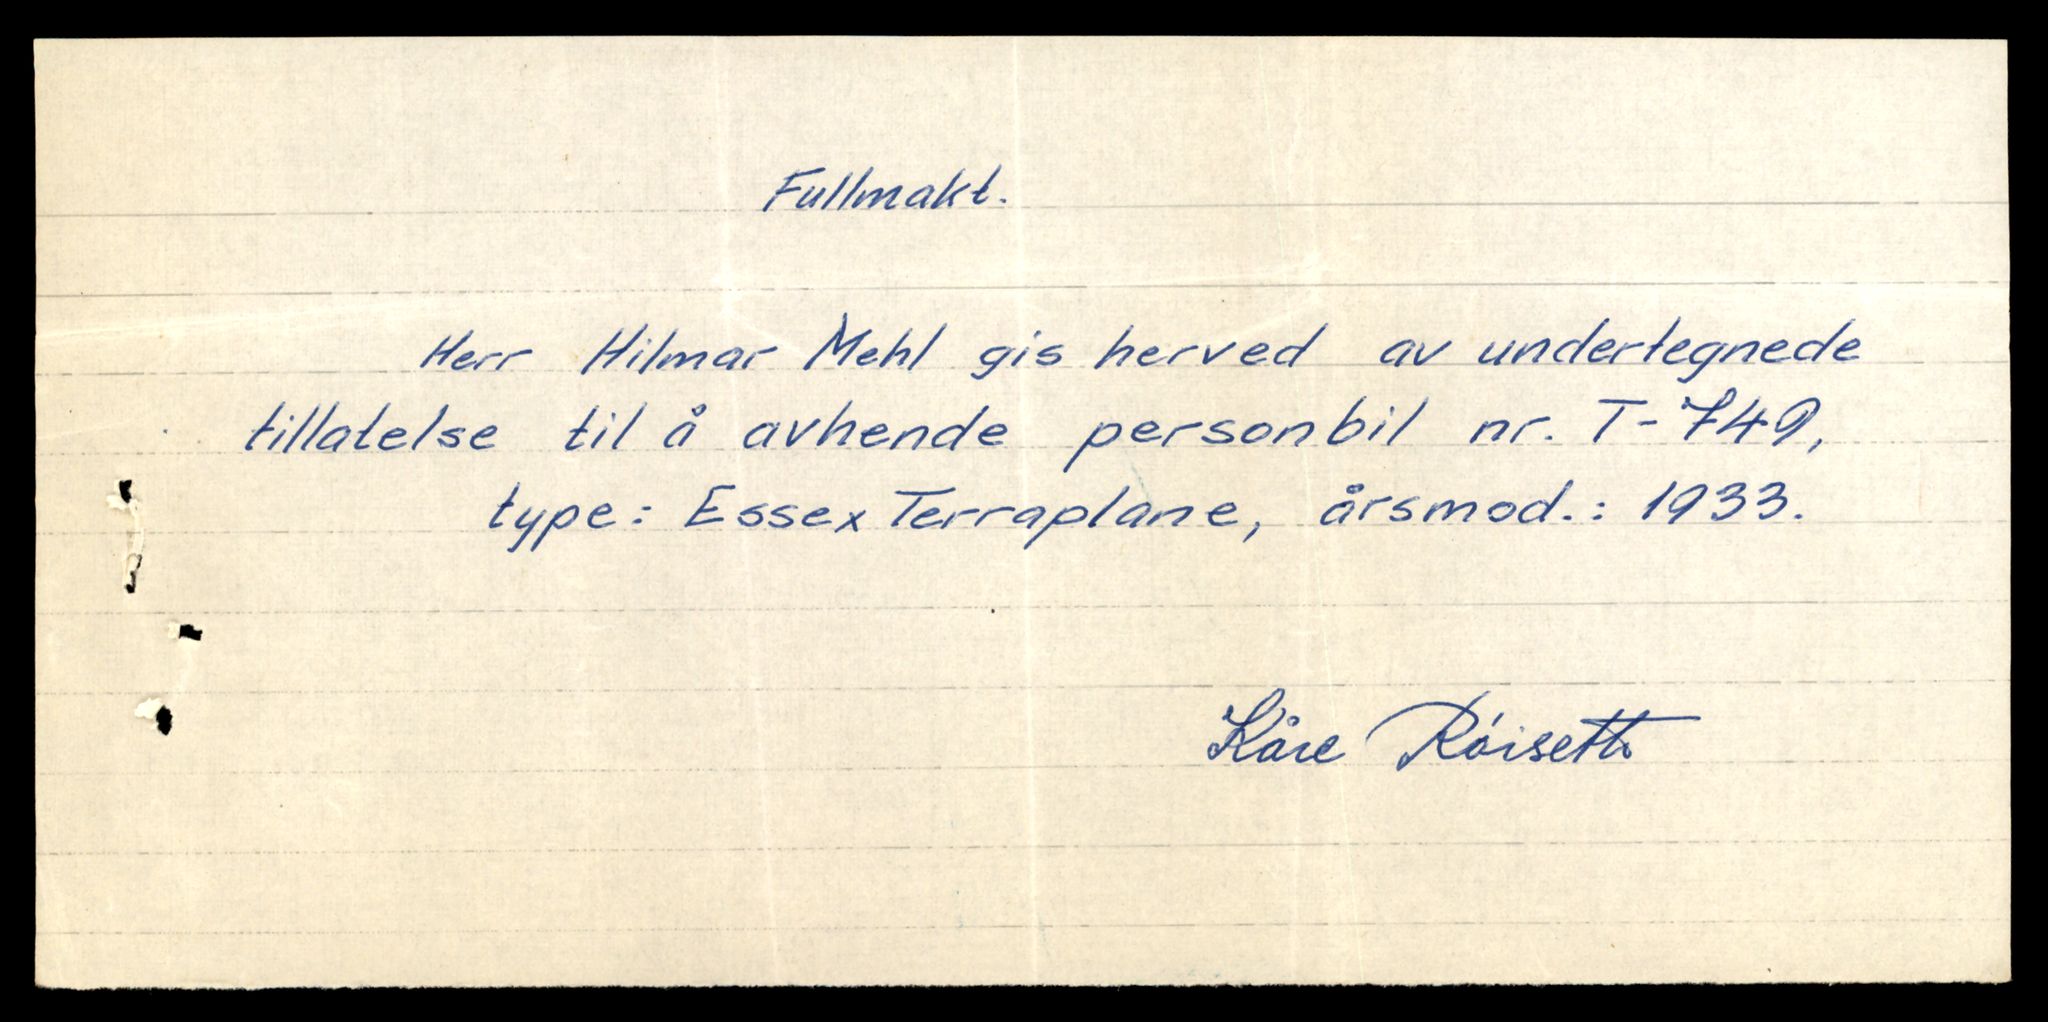 Fullmakt.
Herr Hilmar Mehl gis herved av undertegnede
tillatelse til å avhende personbil nr. T-749,
type: Essex Terraplane, årsmod.: 1933.
Kåre Róisetth